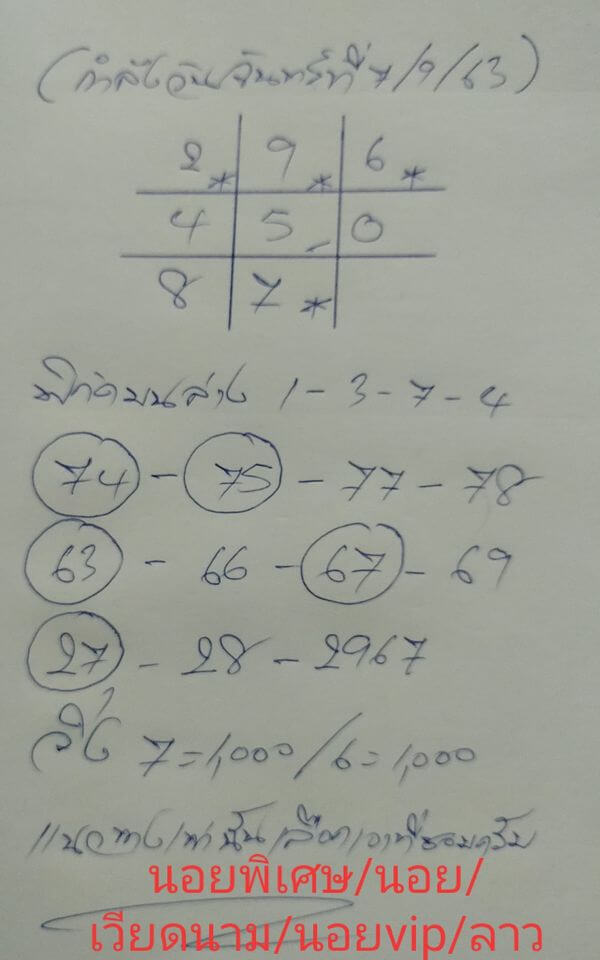 (กำลังวันจันทร์ที่ 7/9/63)
2* 9* 6*
4 5- 0
8 7*
พิกัดบนล่าง 1-3-7-4
74 - 75 - 77 - 78
63 - 66 - 67 - 69
27 - 28 - 2967
วิ่ง 7=1,000/6=1,000
แนวทางเท่านั้นเลือกเอาที่ชอบครับ
นอยพิเศษ/นอย/
เวียดนาม/นอยvip/ลาว